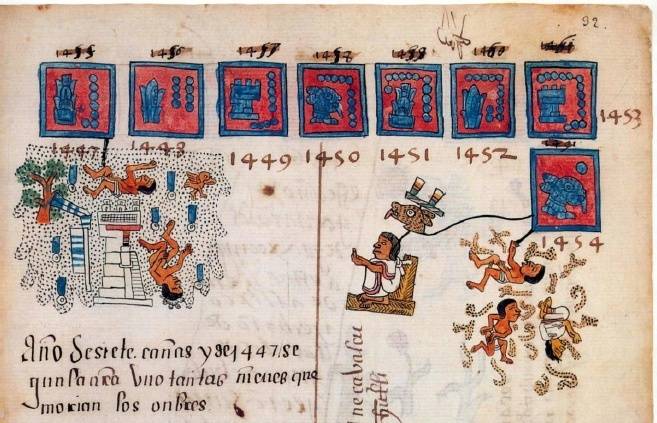 92.
1455 1456 1457 1458 1459 1460 1461
1447 1448 1449 1450 1451 1452 1453
1454
Año de siete. cañas y de 1447. se
uvo tantas nieves que
morian los onbres